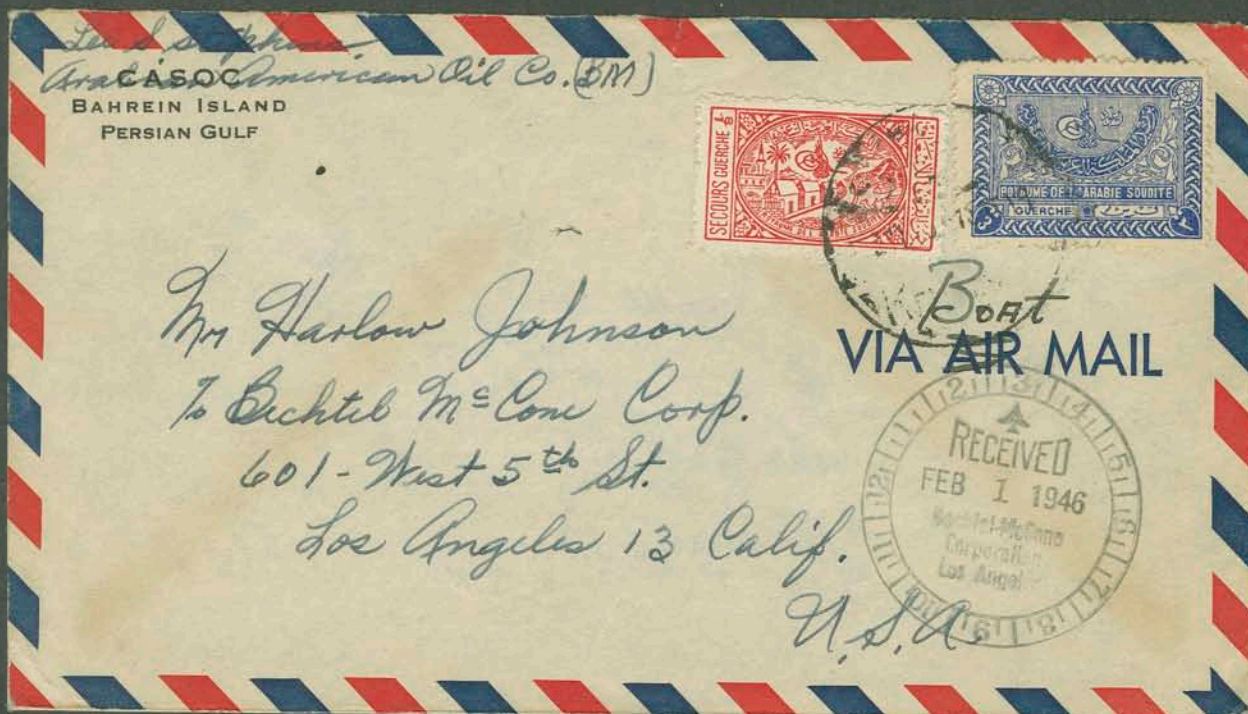 Arabian American Oil Co. (BM)
CASOC
BAHREIN ISLAND
PERSIAN GULF
SECOURS GUERCHE 1/8
ROYAUME DE L'ARABIE SOUDITE
GUERCHE
٣
Boat
VIA AIR MAIL
Mr Harlow Johnson
℅ Bechtel McCone Corp.
601 - West 5th St.
Los Angeles 13 Calif.
U.S.A.
12 1 2 3 4 5 6 7 8 9 10 11
RECEIVED
FEB 1 1946
Bechtel-McCone
Corporation
Los Angel